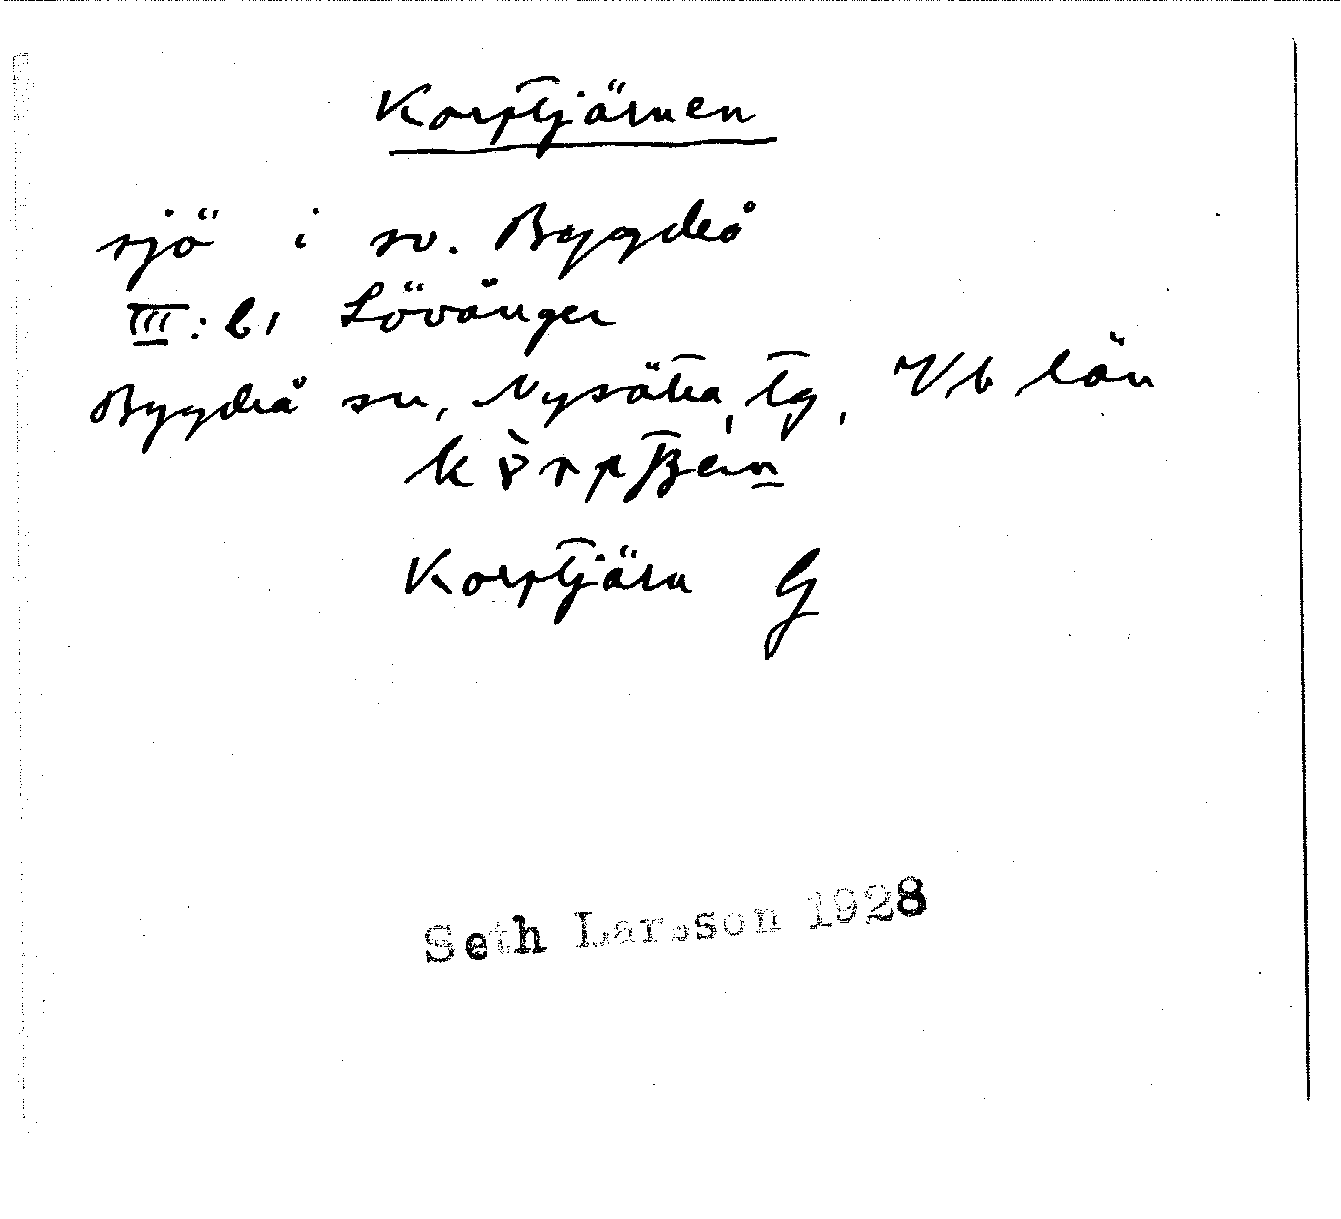 Korptjärnen
sjö i sv. Bygdeå
III: b1 Lövånger
Bygdeå sn, Nysätra tg, Vb län
Korptjärn G
Seth Larsson 1928